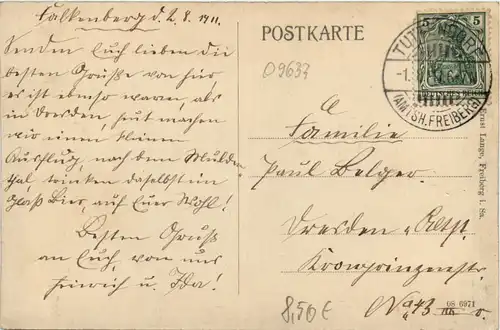 Falkenberg d. 2. 8. 1911.
Senden Euch lieben die
besten Grüße von hier
es ist ebenso warm, als
in Dresden, heut machen
wir einen kleinen
Ausflug, nach dem Mulden
thal trinken daselbst ein
glaß Bier, auf Euer Wohl!
Besten Gruß
an Euch, von uns
Heinrich u. Ida!
POSTKARTE
09637
5 5
TUTTENDORF
(AMTSH. FREIBERG)
Familie
Paul Belger.
Dresden Altst.
Kronprinzenstr.
No 43
8,50 €
08 6971
Ernst Lange, Freiberg i. Sa.